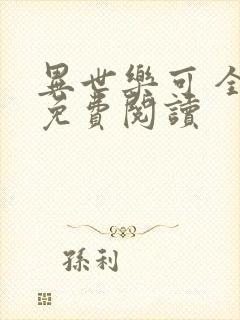 異世樂可 全
免費閱讀
孫利